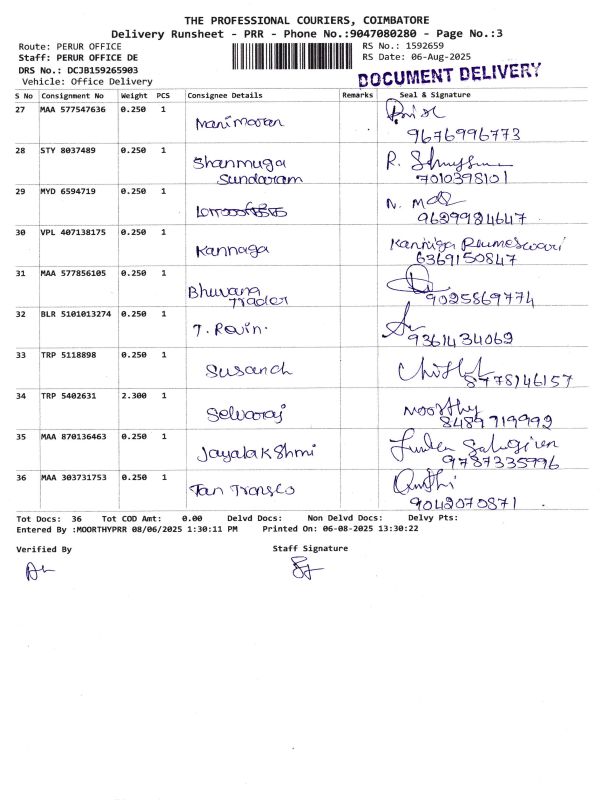 THE PROFESSIONAL COURIERS, COIMBATORE
Delivery Runsheet - PRR - Phone No.:9047080280 - Page No.:3
Route: PERUR OFFICE
RS No.: 1592659
Staff: PERUR OFFICE DE
RS Date: 06-Aug-2025
DRS No.: DCJB159265903
Vehicle: Office Delivery
DOCUMENT DELIVERY
S No Consignment No Weight PCS Consignee Details Remarks Seal & Signature
27 MAA 577547636 0.250 1 Manimaran
9676996773
28 STY 8037489 0.250 1 Shanmuga
Sundaram
7010398101
29 MYD 6594719 0.250 1
9629984647
30 VPL 407138175 0.250 1 Kannaga
6369150847
31 MAA 577856105 0.250 1 Bhuvana
Trader
9025869774
32 BLR 5101013274 0.250 1 T. Ravin.
9361434062
33 TRP 5118898 0.250 1 Susanch
8778146157
34 TRP 5402631 2.300 1 Selvaraj Moorthy
8489719992
35 MAA 870136463 0.250 1 Jayalakshmi
9787335996
36 MAA 303731753 0.250 1 Tan Transco
9042070871
Tot Docs: 36 Tot COD Amt: 0.00 Delvd Docs: Non Delvd Docs: Delvy Pts:
Entered By :MOORTHYPRR 08/06/2025 1:30:11 PM Printed On: 06-08-2025 13:30:22
Verified By Staff Signature